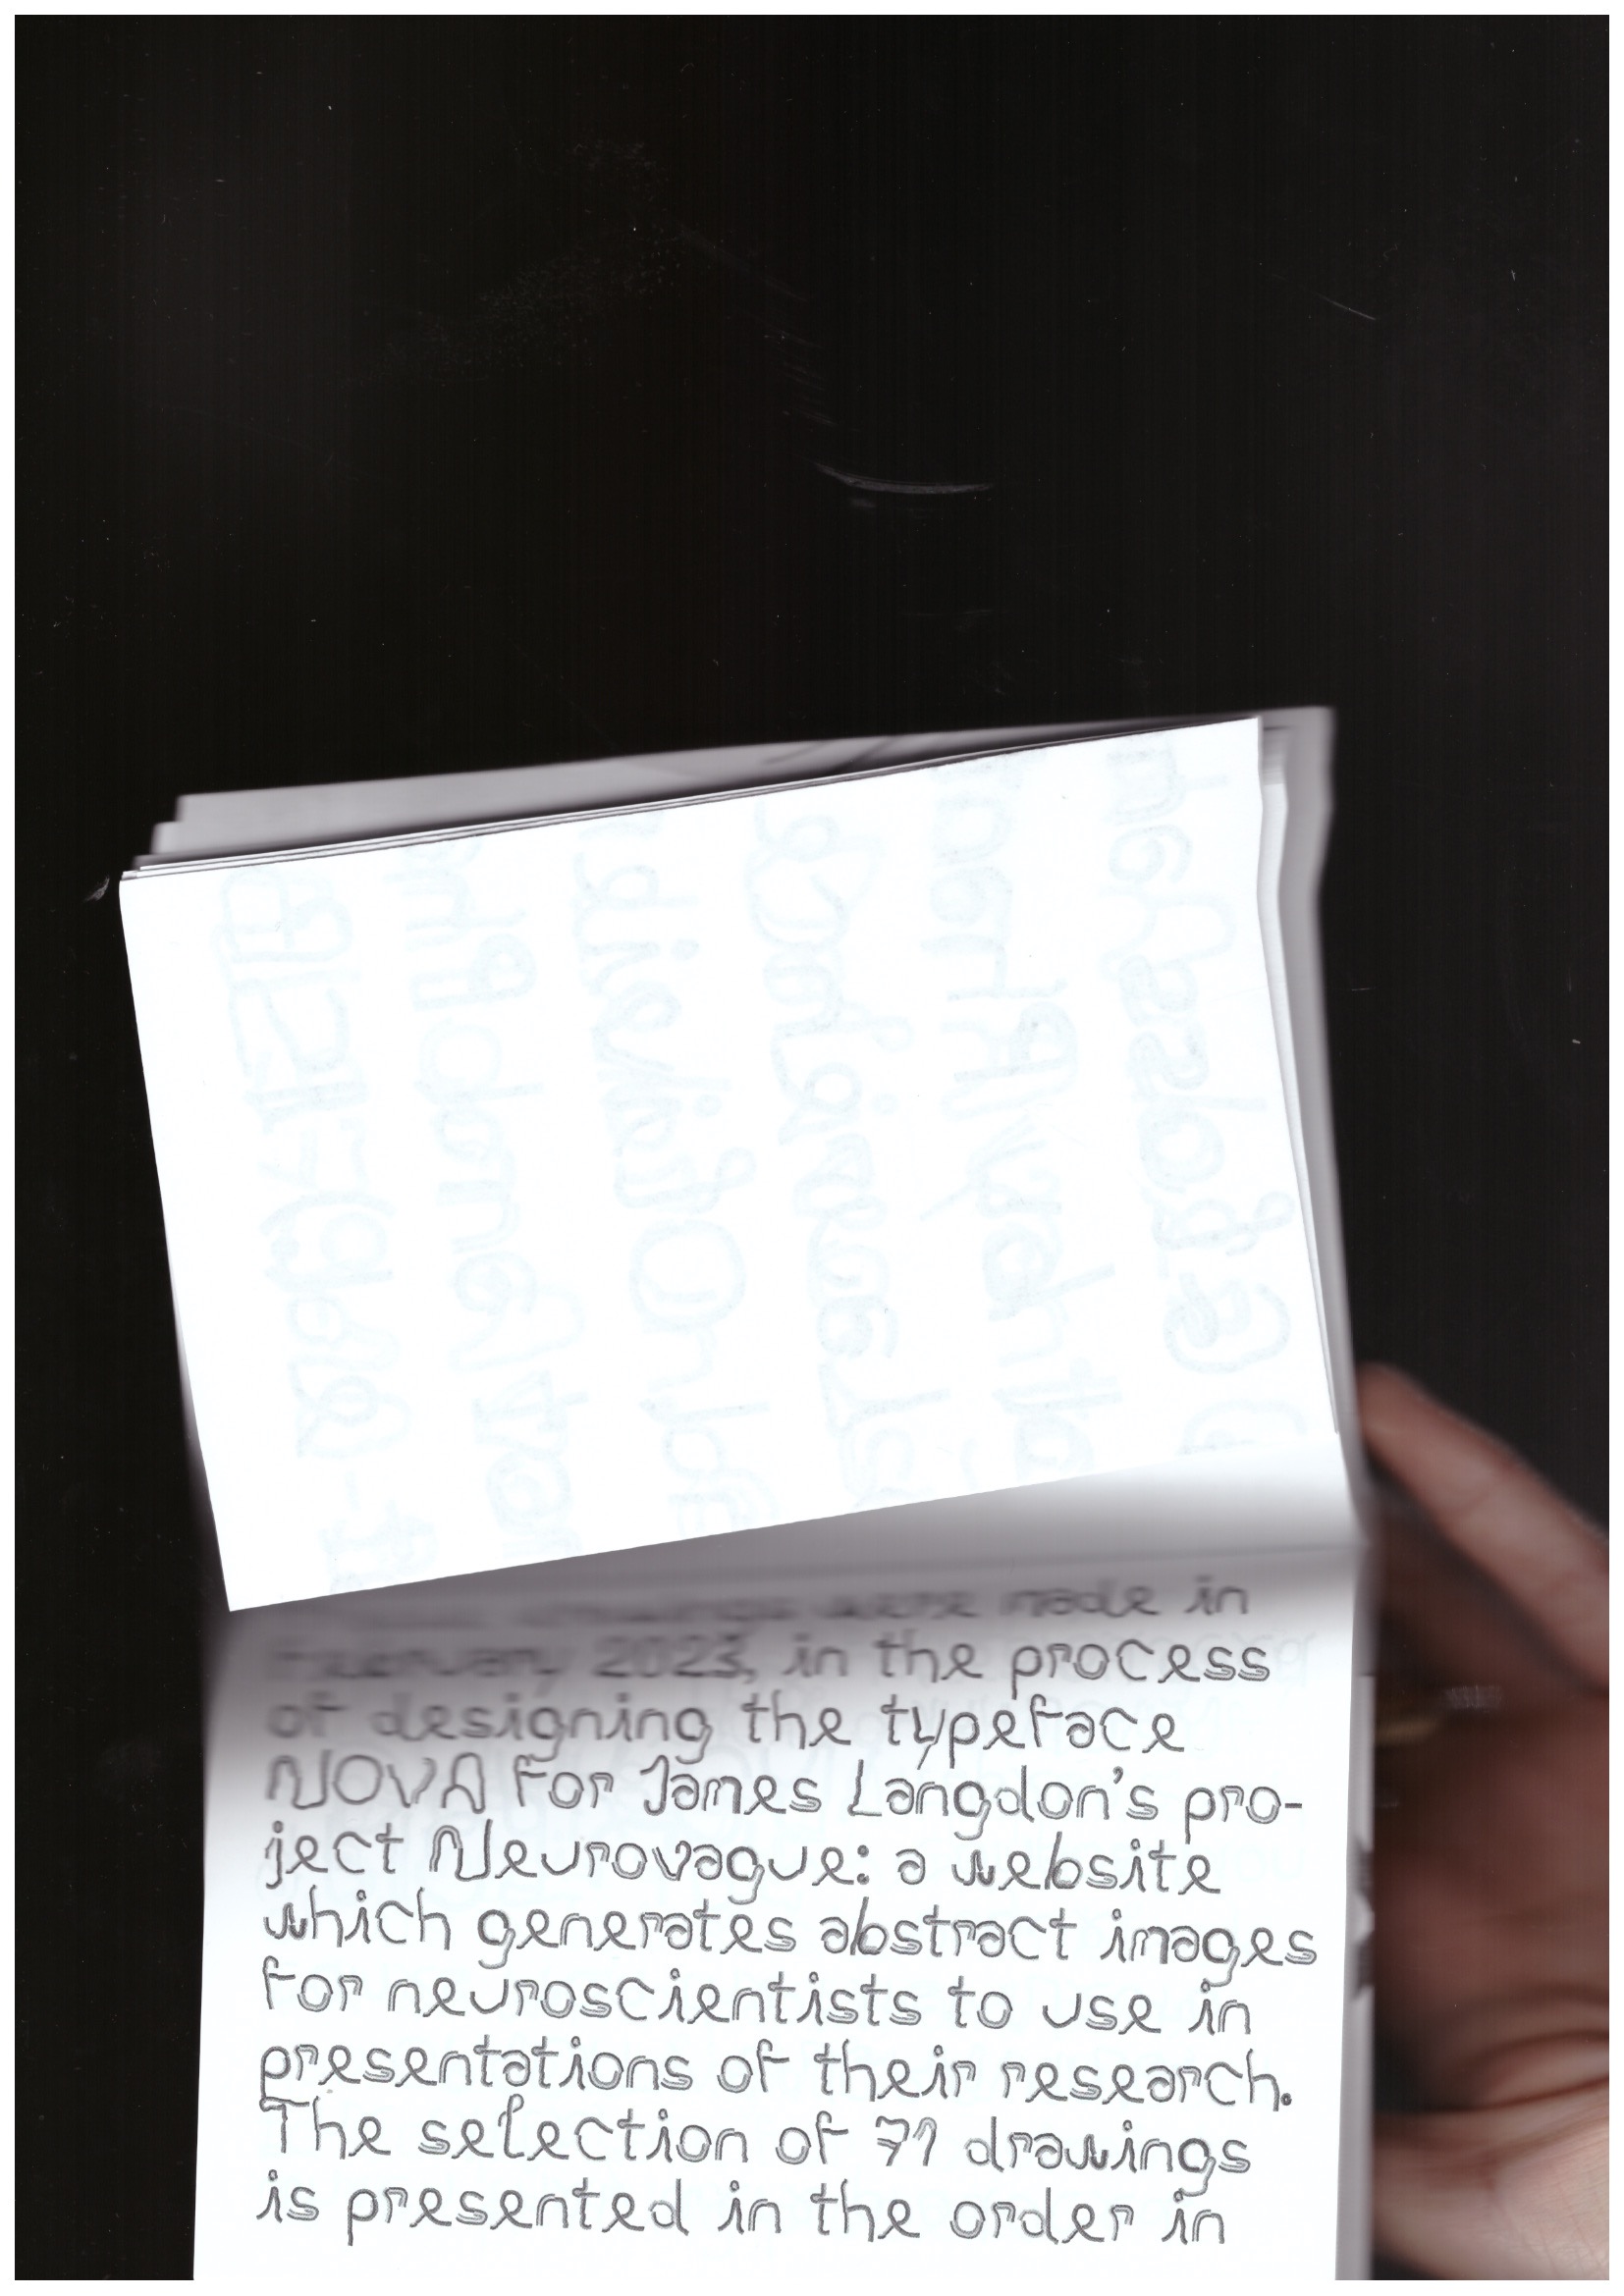 drawings were made in
February 2023, in the process
of designing the typeface
NOVA for James Langdon's pro-
ject Neurovague: a website
which generates abstract images
for neuroscientists to use in
presentations of their research.
The selection of 71 drawings
is presented in the order in